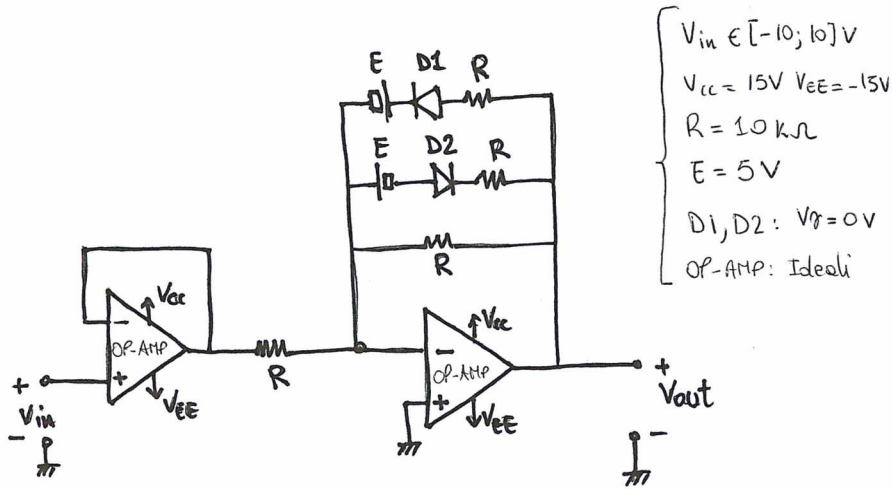 E D1 R
E D2 R
R
Vcc
OP-AMP
VEE
R
Vcc
OP-AMP
VEE
+
Vin
-
+
Vout
-
-
+
-
+
Vin ∈ [-10; 10] V
Vcc = 15V VEE = -15V
R = 10 kΩ
E = 5 V
D1, D2: Vγ = 0 V
OP-AMP: Ideali